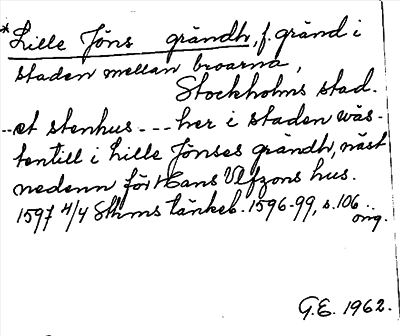 *Lille Jöns grändh, f. gränd i
staden mellan broarna,
Stockholms stad.
..et stenhus --- her i staden wäs-
tentill i Lille Jönses grändh, näst
nedenn för Hans Ulfzons hus.
1597 4/4 Sthms tänkeb. 1596-99, s. 106..
orig.
G.E. 1962.